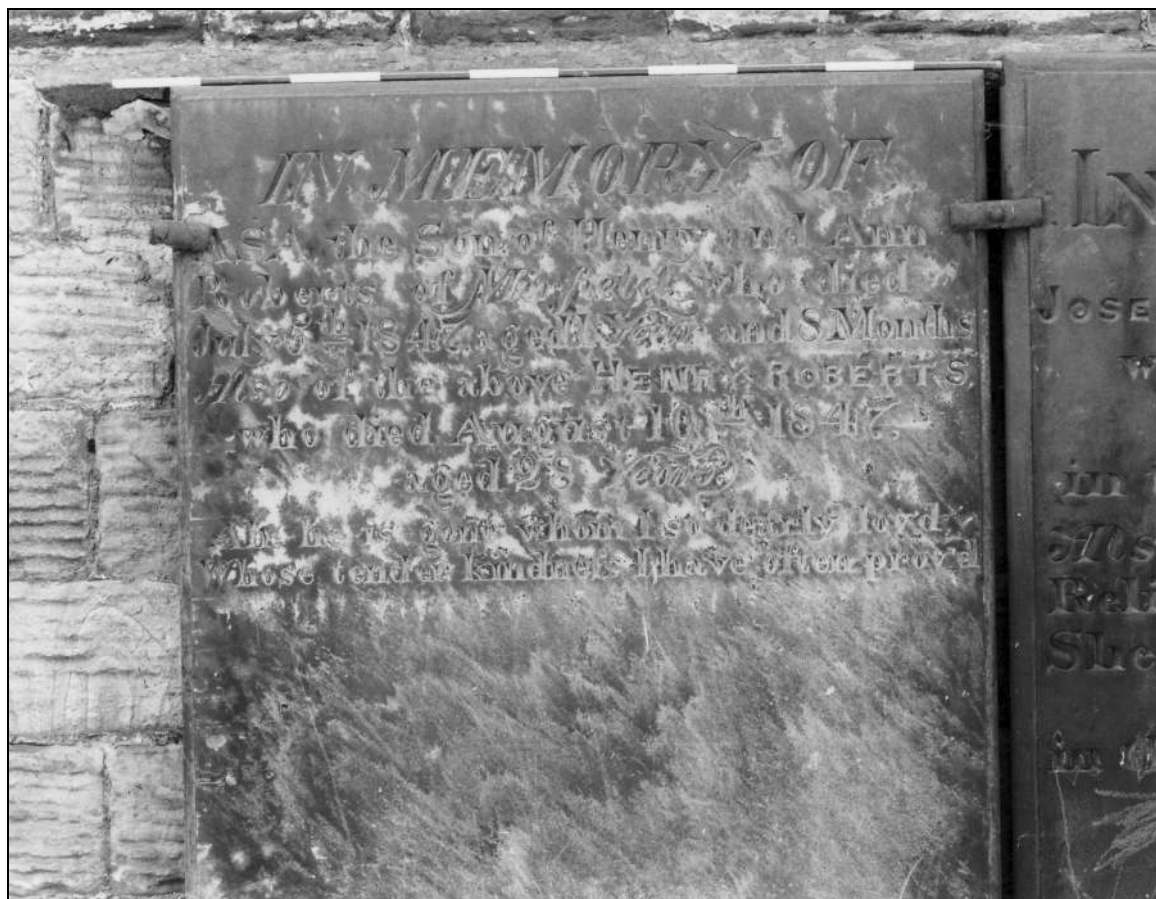 IN MEMORY OF
ASA the Son of Henry and Ann
Roberts of Mirfield who died
July 5th 1847. aged 1 Year and 8 Months
Also of the above HENRY ROBERTS,
who died August 10th 1847.
aged 28 Years
Ah! he is gone whom I so dearly lov'd
Whose tender kindness I have often prov'd
IN
JOSE
W
in
Als
Reli
in